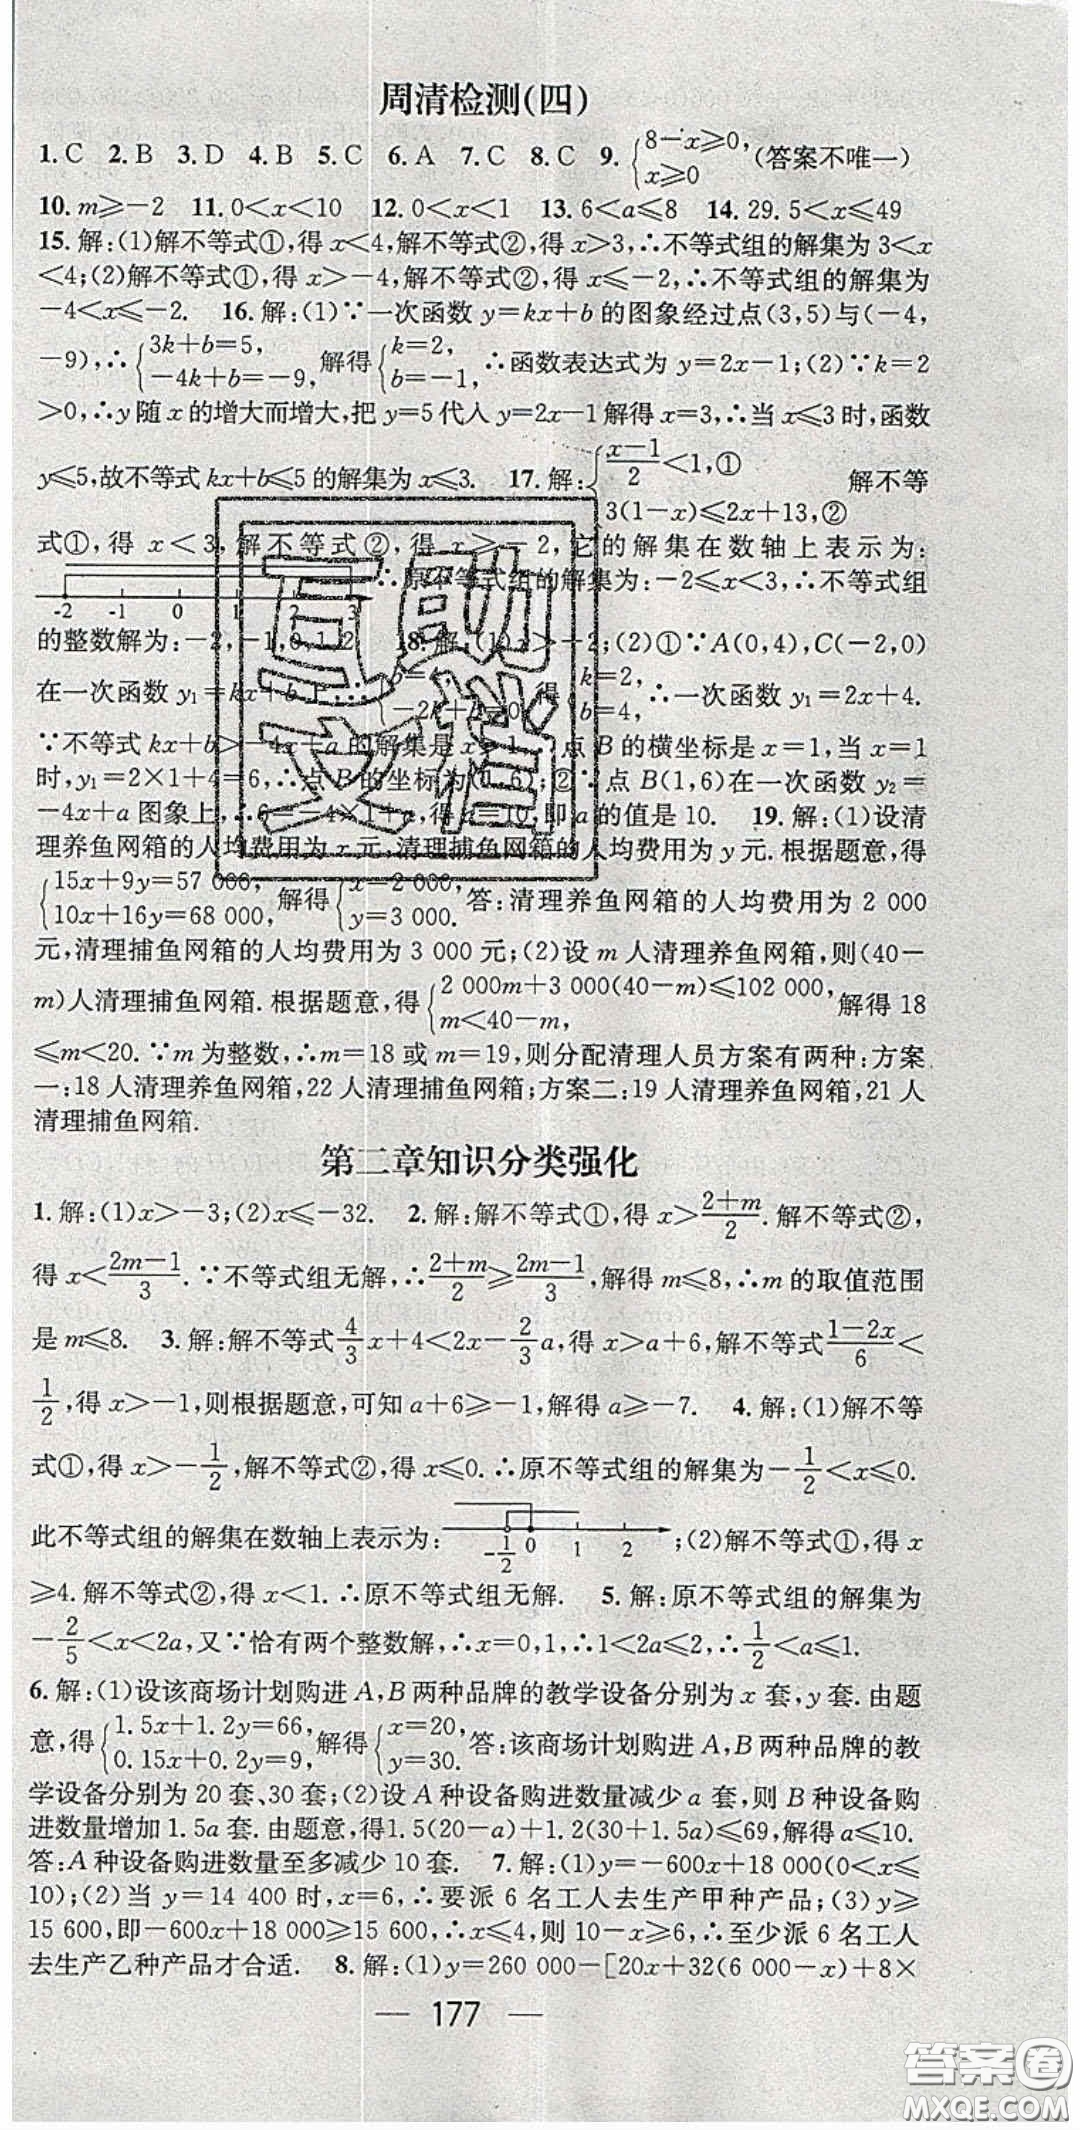 周清检测(四)
1. C 2. B 3. D 4. B 5. C 6. A 7. C 8. C 9. {8-x≥0, x≥0 (答案不唯一)
10. m≥-2 11. 0<x<10 12. 0<x<1 13. 6<a≤8 14. 29.5<x≤49
15. 解:(1)解不等式①,得 x<4,解不等式②,得 x>3,∴不等式组的解集为 3<x
<4;(2)解不等式①,得 x>-4,解不等式②,得 x≤-2,∴不等式组的解集为
-4<x≤-2. 16. 解:(1)∵一次函数 y=kx+b 的图象经过点(3,5)与(-4,
-9),∴{3k+b=5, -4k+b=-9, 解得{k=2, b=-1, ∴函数表达式为 y=2x-1;(2)∵k=2
>0,∴y 随 x 的增大而增大,把 y=5代入 y=2x-1解得 x=3,∴当 x≤3时,函数
y≤5,故不等式 kx+b≤5的解集为 x≤3. 17. 解:{(x-1)/2<1,① 3(1-x)≤2x+13,② 解不等
式①,得 x<3,解不等式②,得 x≥-2,它的解集在数轴上表示为:
-2 -1 0 1 2 3 ∴原不等式组的解集为:-2≤x<3,∴不等式组
的整数解为:-2,-1,0,1,2. 18. 解:(1)x>-2;(2)①∵A(0,4),C(-2,0)
在一次函数 y₁=kx+b上,∴{b=4, -2k+b=0, 得{k=2, b=4, ∴一次函数 y₁=2x+4.
∵不等式 kx+b>-4x+a的解集是 x>1,∴点 B的横坐标是 x=1,当 x=1
时,y₁=2×1+4=6,∴点 B的坐标为(1,6);②∵点 B(1,6)在一次函数 y₂=
-4x+a图象上,∴6=-4×1+a,得a=10,即 a的值是 10. 19. 解:(1)设清
理养鱼网箱的人均费用为 x 元,清理捕鱼网箱的人均费用为 y 元.根据题意,得
{15x+9y=57 000, 10x+16y=68 000, 解得{x=2 000, y=3 000. 答:清理养鱼网箱的人均费用为 2 000
元,清理捕鱼网箱的人均费用为 3 000 元;(2)设 m 人清理养鱼网箱,则(40-
m)人清理捕鱼网箱.根据题意,得{2 000m+3 000(40-m)≤102 000, m<40-m, 解得 18
≤m<20.∵m 为整数,∴m=18 或 m=19,则分配清理人员方案有两种:方案
一:18 人清理养鱼网箱,22 人清理捕鱼网箱;方案二:19 人清理养鱼网箱,21 人
清理捕鱼网箱.
第二章知识分类强化
1. 解:(1)x>-3;(2)x≤-32. 2. 解:解不等式①,得 x>(2+m)/2.解不等式②,
得 x<(2m-1)/3.∵不等式组无解,∴(2+m)/2≥(2m-1)/3,解得 m≤8,∴m 的取值范围
是 m≤8. 3. 解:解不等式4/3x+4<2x-2/3a,得 x>a+6,解不等式(1-2x)/6<
1/2,得 x>-1,则根据题意,可知 a+6≥-1,解得 a≥-7. 4. 解:(1)解不等
式①,得 x>-1/2,解不等式②,得 x≤0.∴原不等式组的解集为-1/2<x≤0.
此不等式组的解集在数轴上表示为: -1/2 0 1 2 ;(2)解不等式①,得 x
≥4.解不等式②,得 x<1.∴原不等式组无解. 5. 解:原不等式组的解集为
-2/5<x<2a,又∵恰有两个整数解,∴x=0,1,∴1<2a≤2,∴1/2<a≤1.
6. 解:(1)设该商场计划购进 A,B两种品牌的教学设备分别为 x 套,y 套.由题
意,得{1.5x+1.2y=66, 0.15x+0.2y=9, 解得{x=20, y=30. 答:该商场计划购进 A,B两种品牌的教
学设备分别为 20 套、30 套;(2)设 A种设备购进数量减少 a 套,则 B种设备购
进数量增加 1.5a 套.由题意,得1.5(20-a)+1.2(30+1.5a)≤69,解得 a≤10.
答:A 种设备购进数量至多减少 10 套. 7. 解:(1)y=-600x+18 000(0<x≤
10);(2)当 y=14 400 时,x=6,∴要派 6 名工人去生产甲种产品;(3)y≥
15 600,即-600x+18 000≥15 600,∴x≤4,则 10-x≥6,∴至少派 6 名工人
去生产乙种产品才合适. 8. 解:(1)y=260 000-[20x+32(6 000-x)+8×
— 177 —
答案圈
MXQE.COM